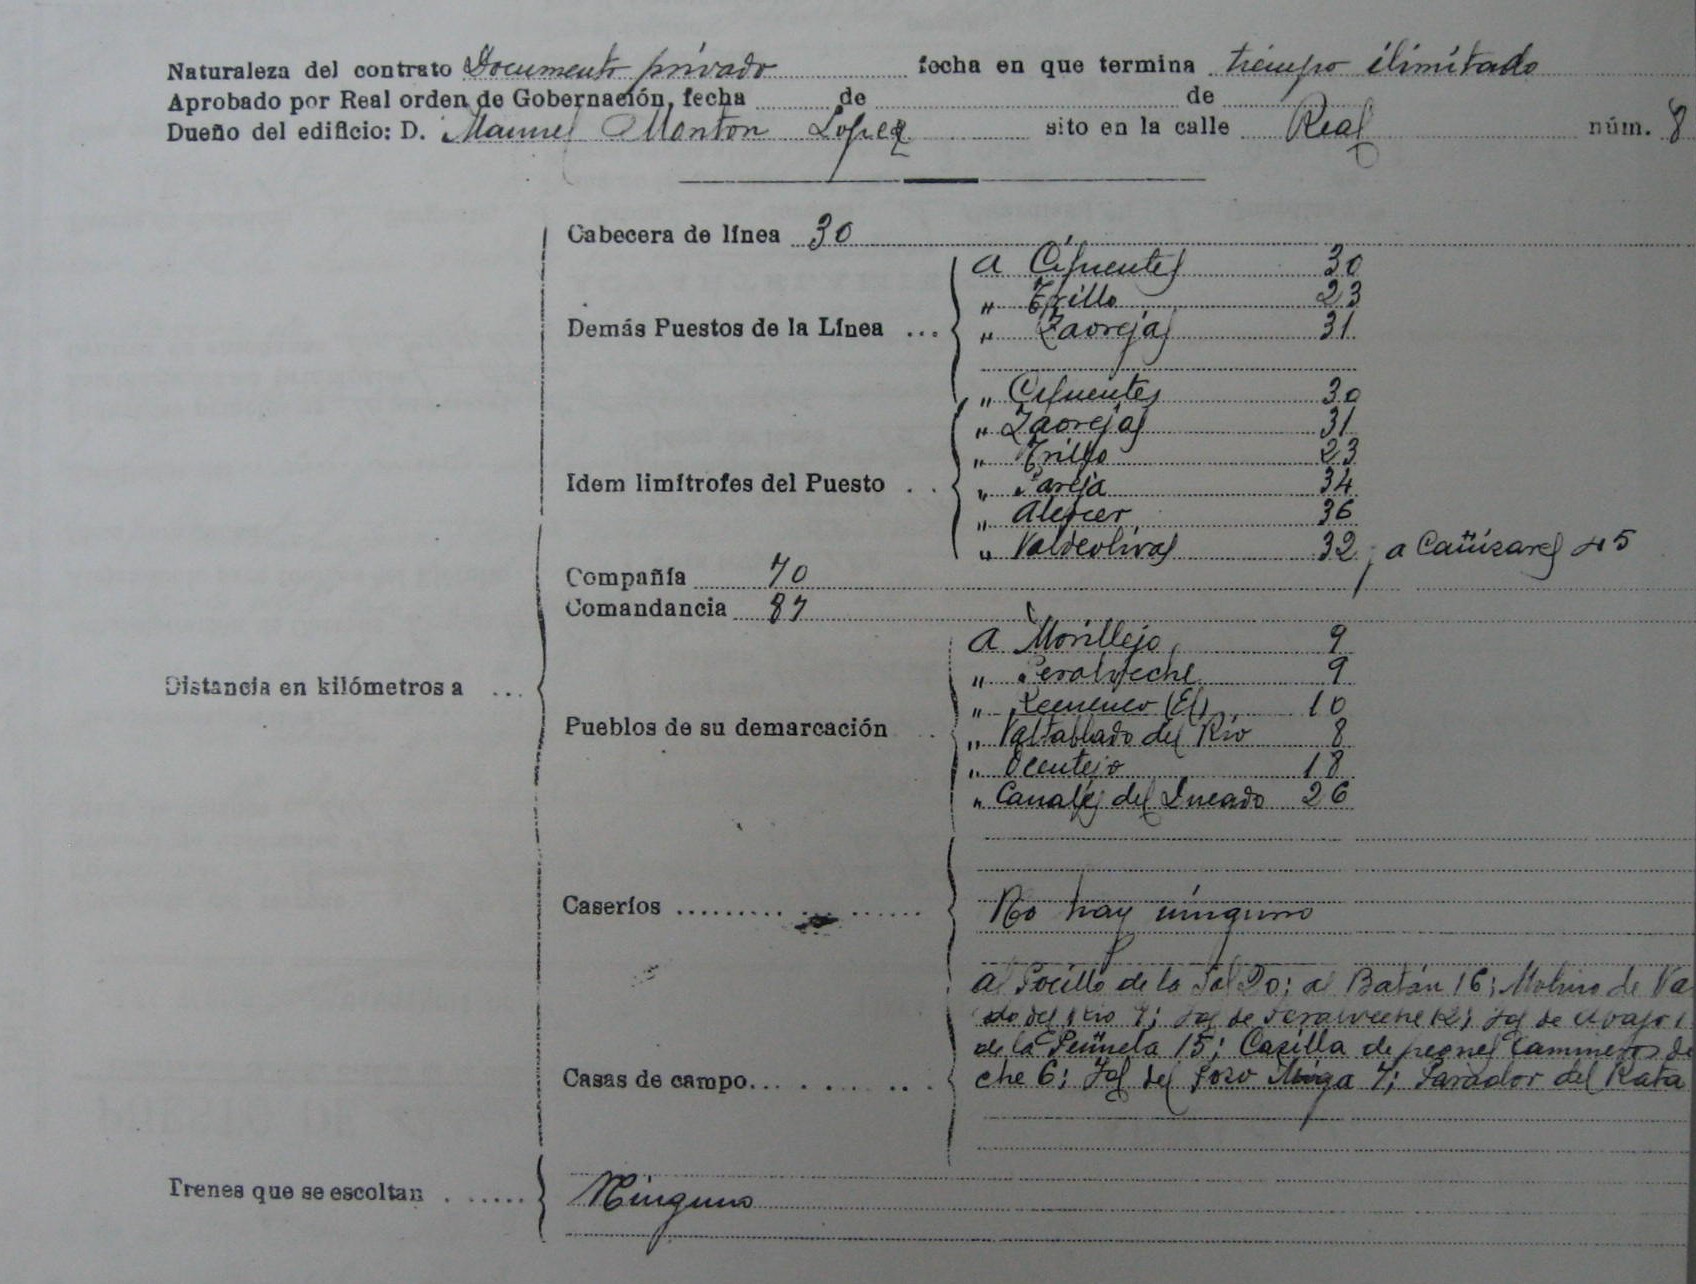 Naturaleza del contrato Documento privado fecha en que termina tiempo ilimitado
Aprobado por Real orden de Gobernación, fecha ........ de ........ de ........
Dueño del edificio: D. Manuel Monton Lopez sito en la calle Real núm. 8
Cabecera de línea 30
a Cifuentes 30
„ Trillo 23
Demás Puestos de la Línea ... „ Zaorejas 31
„ Cifuentes 30
„ Zaorejas 31
„ Trillo 23
Idem limítrofes del Puesto . . „ Pareja 34
„ Alcocer 36
„ Valdeolivas 32 ; a Cañizares 45
Compañía 70
Comandancia 87
a Morillejo 9
Distancia en kilómetros a ... „ Peralveche 9
„ Recuenco (El) 10
Pueblos de su demarcación . „ Valtablado del Río 8
„ Ocentejo 18
„ Canales del Ducado 26
Caseríos ........ No hay ninguno
al Pocillo de la Sal 20; al Batán 16; Molino de Va
do del Rio 7; Id de Peralveche 12; Id de Abajo 1
de la 15; Casilla de peones Camineros de
Casas de campo... che 6; Id del Pozo 7; Parador del Rata
Trenes que se escoltan ...... Ninguno